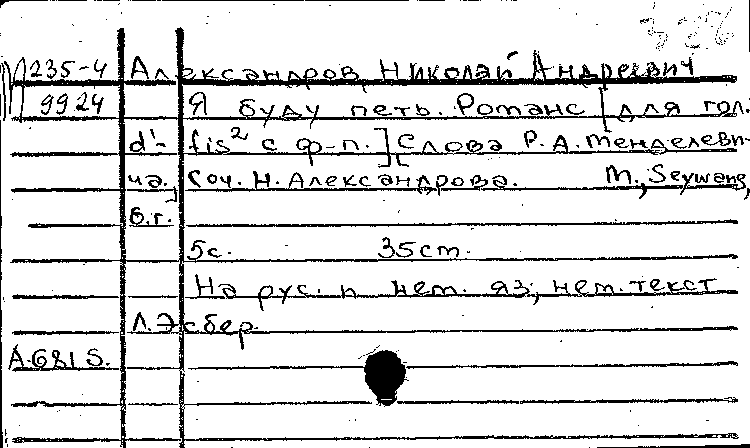 235-4 Александров, Николай Андреевич
9924 Я буду петь. Романс [для гол.
d¹- fis² с ф-п.] [Слова Р. А. Менделеви-
ча.] Соч. Н. Александрова. М., Seywang,
б.г.
5с. 35cm.
На рус. и нем. яз, нем. текст
Л. Эсбер.
А.681 S.